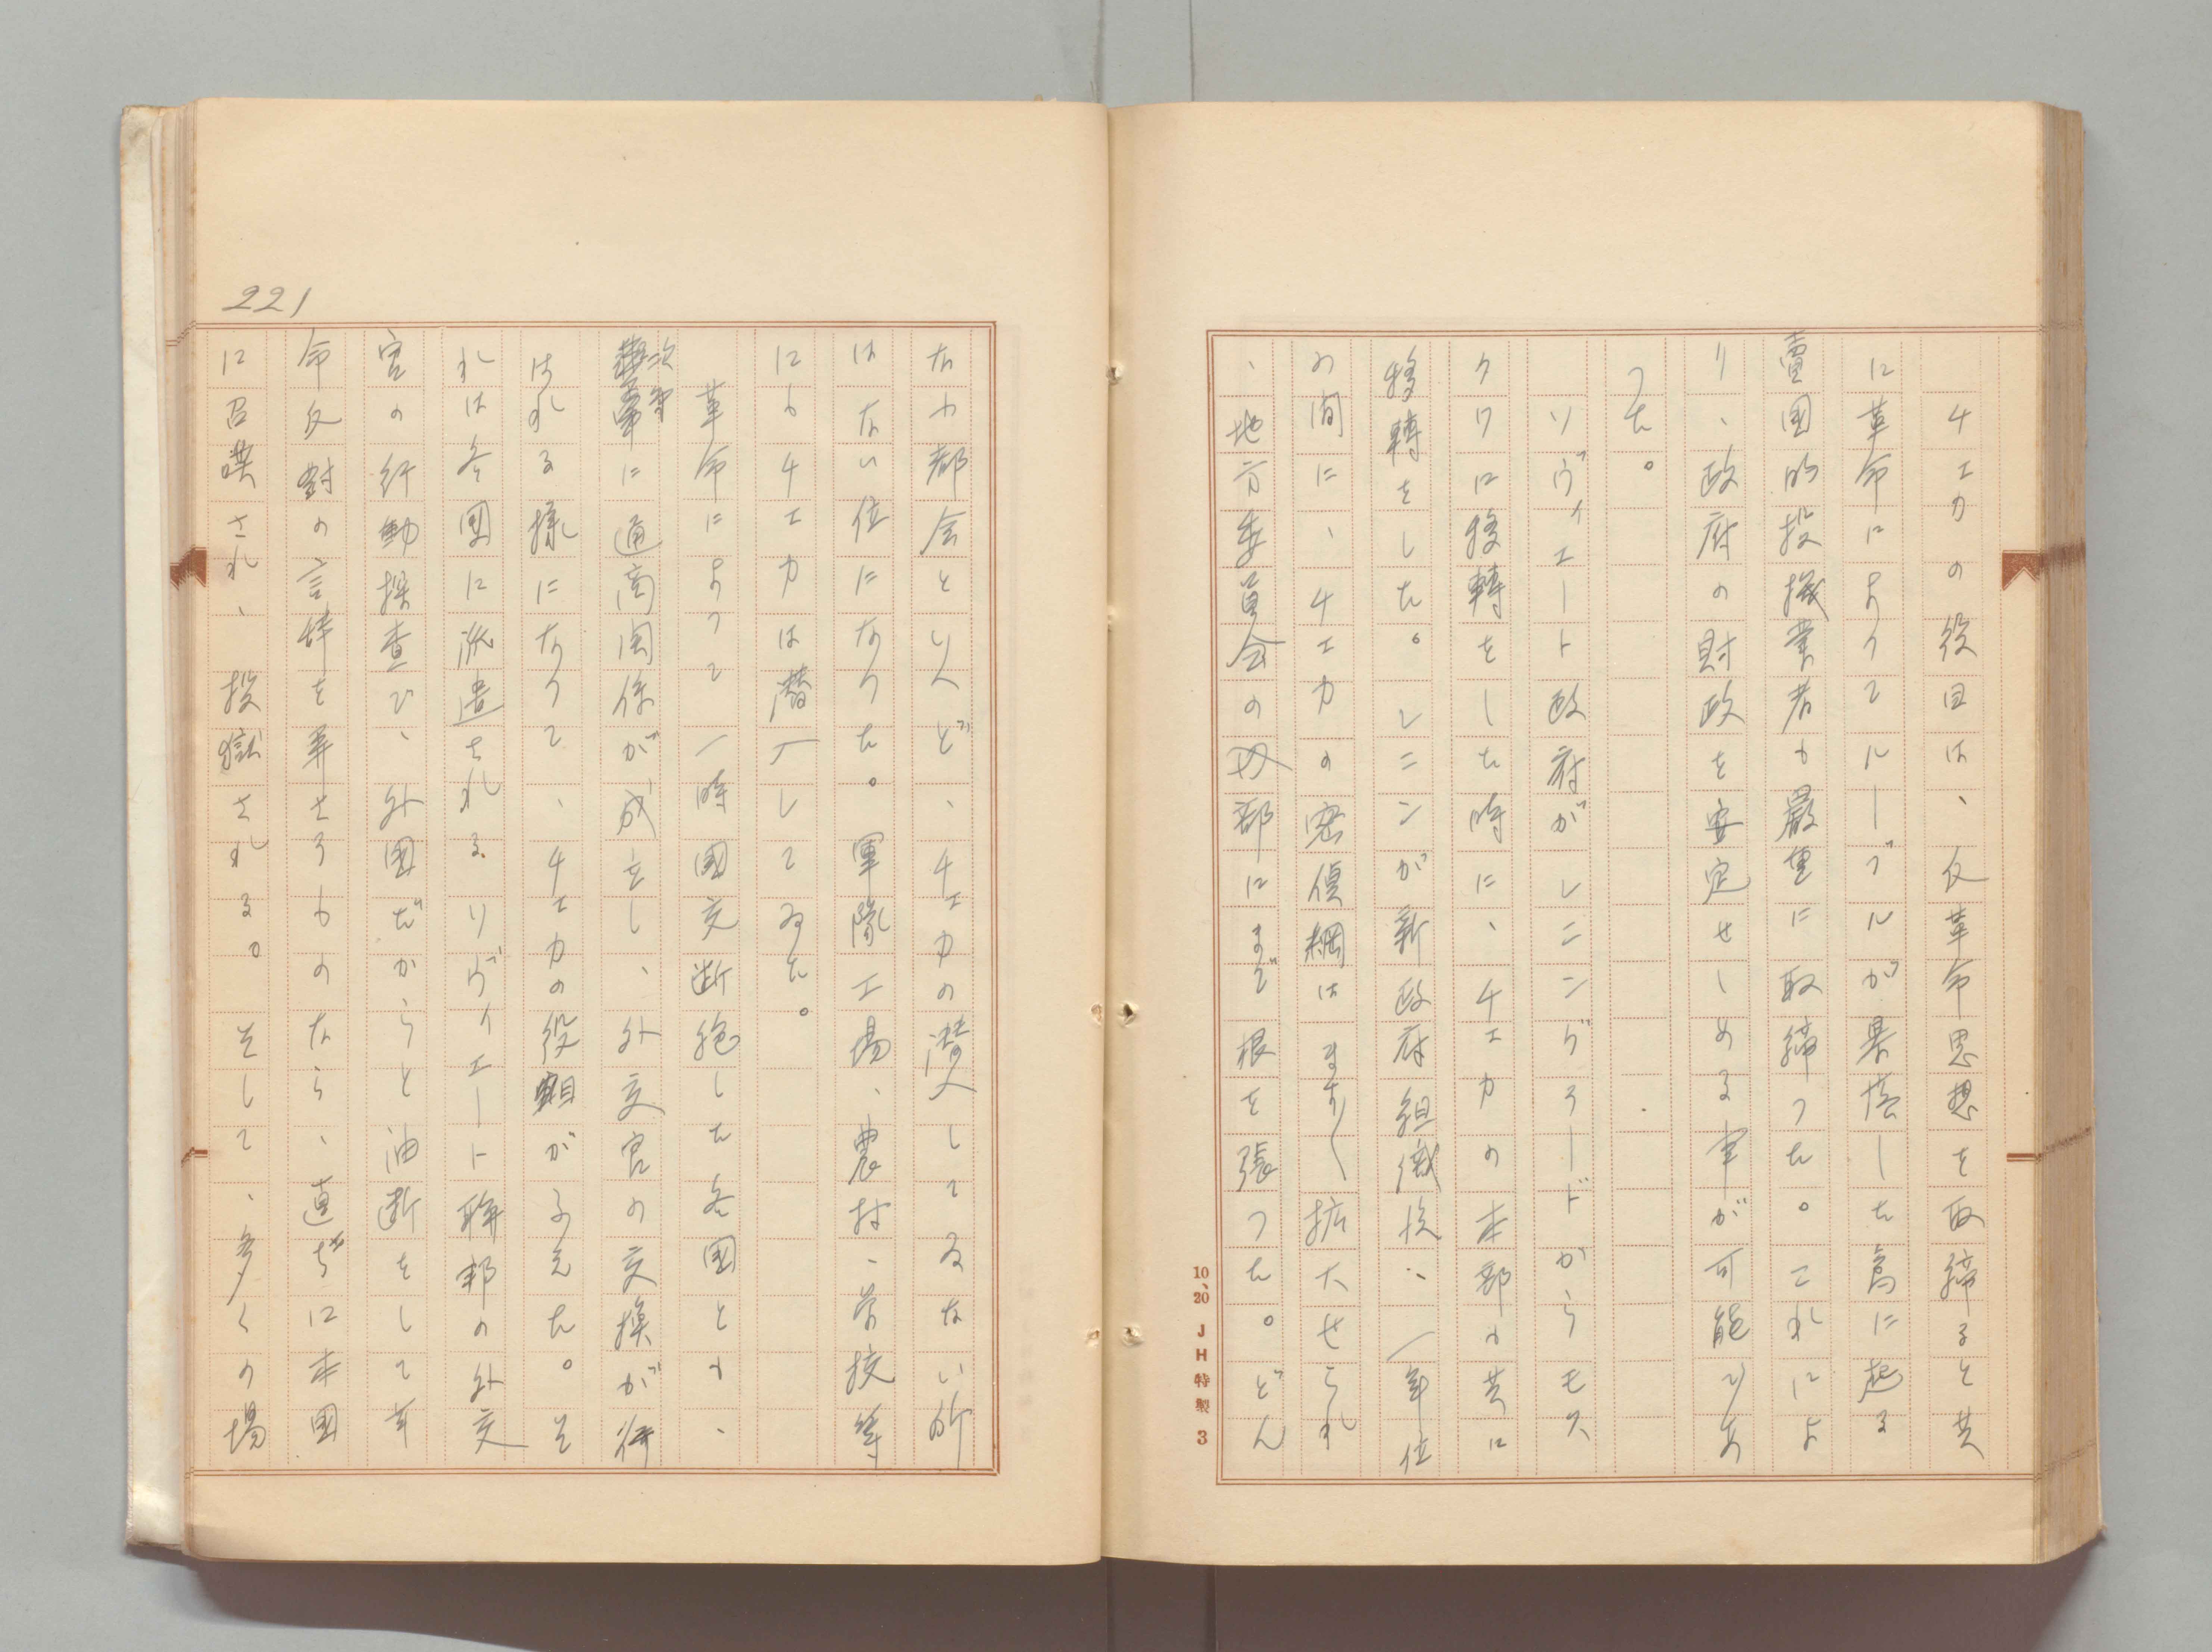 チエカの役目は、反革命思想を取締ると共
に革命によつてルーブルが暴落した為に起る
賣国的投機業者も嚴重に取締つた。これによ
り、政府の財政を安定せしめる事が可能であ
つた。
ソヴィエート政府がレニングラードからモス
クワに移轉をした時に、チエカの本部も共に
移轉をした。レニンが新政府組織後、一年位
の間に、チエカの密偵網はます〱拡大せられ
、地方委員会の内部にまで根を張つた。どん
10、20 JH特製 3
221
なわ都会といへど、チエカの潜入してゐない所
はない位になつた。軍隊工場、農村、学校等
にもチエカは潜入してゐた。
革命によつて一時国交断絶した各国とも、
次第に通商関係が成立し、外交官の交換が行
はれる様になつて、チエカの役目がふえた。そ
れは各国に派遣される ソヴィエート聯邦の外交
官の行動探査で、外国だからと油断をして革
命反對の言辞を弄せうものなら、直ぢに本国
に召喚され、投獄される。そして、多くの場